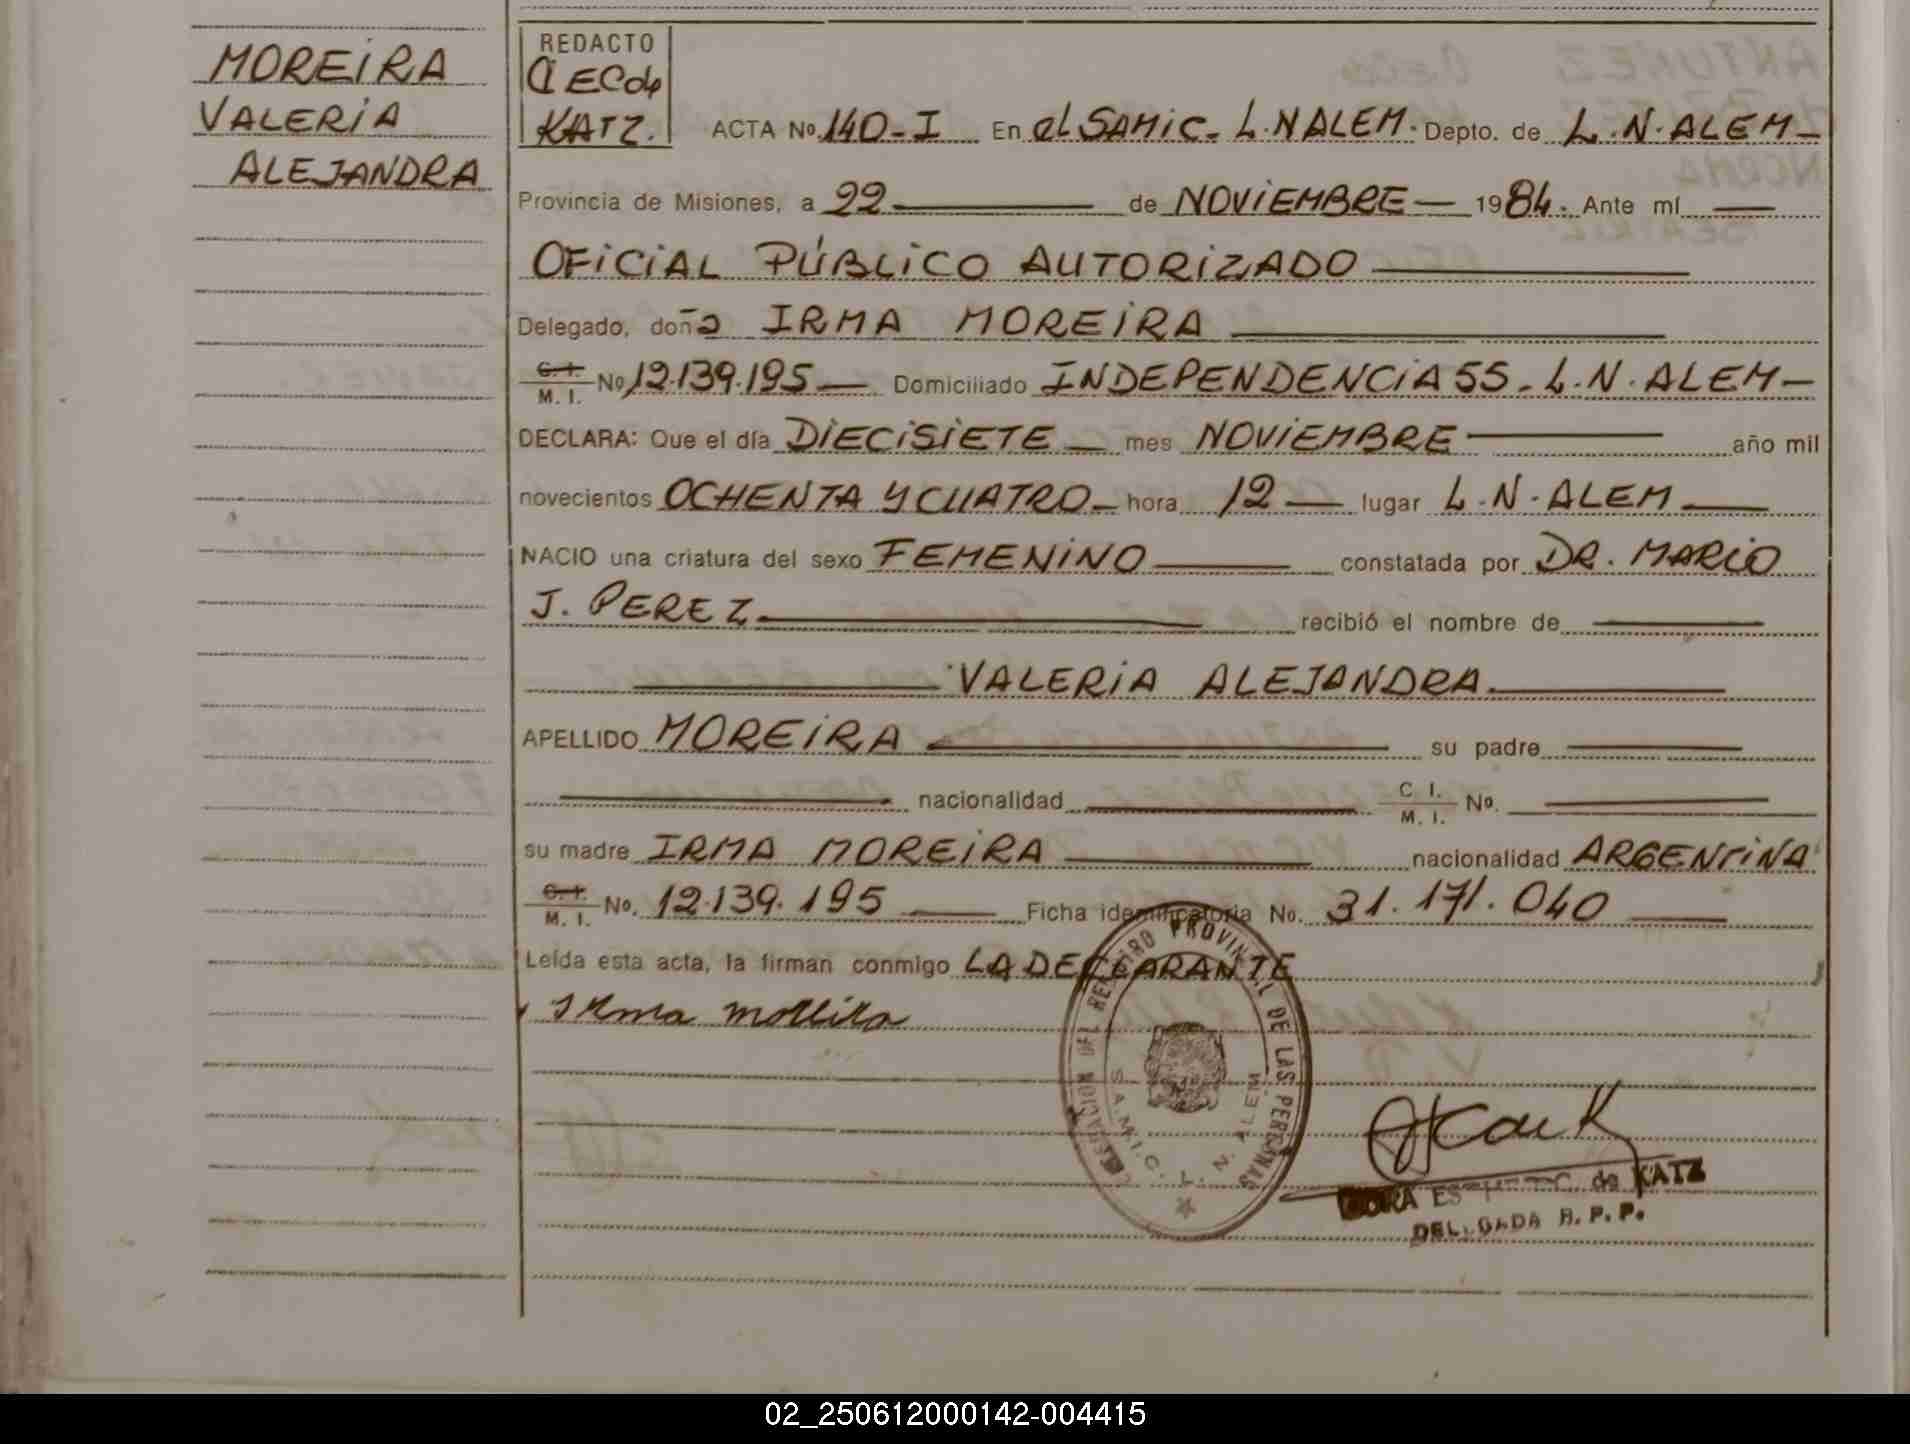 MOREIRA
VALERIA
ALEJANDRA
REDACTO
KATZ.
ACTA No. 140-I En el SAMIC. L.N ALEM. Depto. de L.N. ALEM-
Provincia de Misiones, a 22 de NOVIEMBRE 1984. Ante mí
OFICIAL PÚBLICO AUTORIZADO
Delegado, doña IRMA MOREIRA
C. I.
M. I. No 12.139.195 Domiciliado INDEPENDENCIA 55 - L.N. ALEM-
DECLARA: Que el día DIECISIETE mes NOVIEMBRE año mil
novecientos OCHENTA Y CUATRO hora 12 lugar L.N. ALEM
NACIO una criatura del sexo FEMENINO constatada por DR. MARIO
J. PEREZ recibió el nombre de
VALERIA ALEJANDRA.
APELLIDO MOREIRA su padre
nacionalidad C I.
M. I. No.
su madre IRMA MOREIRA nacionalidad ARGENTINA
C. I.
M. I. No. 12.139.195 Ficha identificatoria No. 31.171.040
Leída esta acta, la firman conmigo LA DECLARANTE
Irma moreira
DEL REGISTRO PROVINCIAL DE LAS PERSONAS
S.A.M.I.C. L. N. ALEM
de KATZ
DELEGADA R. P. P.
02_250612000142-004415